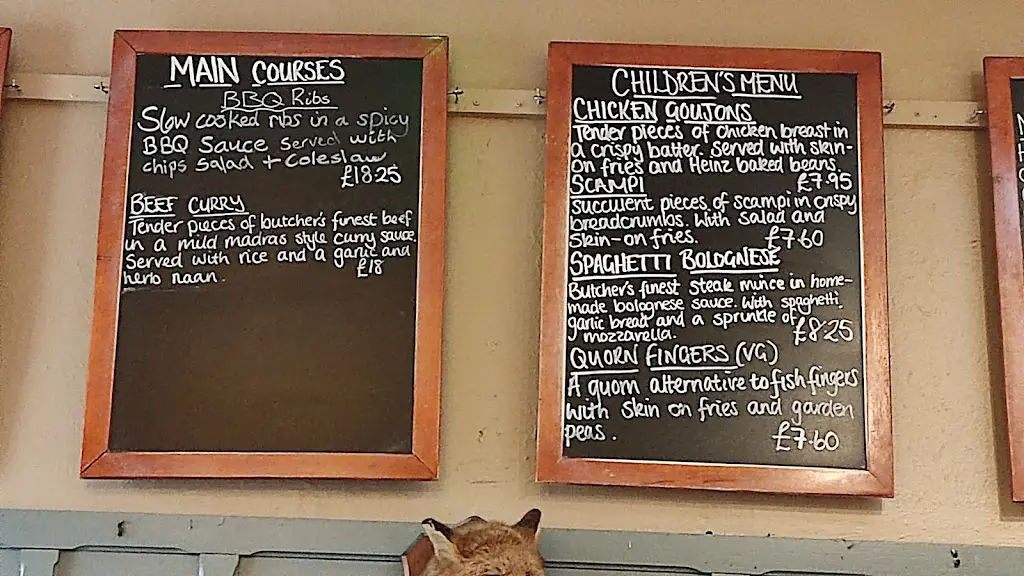 MAIN COURSES
BBQ Ribs
Slow cooked ribs in a spicy
BBQ Sauce served with
chips salad + coleslaw
£18.25
BEEF CURRY
Tender pieces of butcher's finest beef
in a mild madras style curry sauce.
Served with rice and a garlic and
herb naan. £18
CHILDREN'S MENU
CHICKEN GOUJONS
Tender pieces of chicken breast in
a crispy batter. Served with skin-
on fries and Heinz baked beans
SCAMPI £7.95
Succulent pieces of scampi in crispy
breadcrumbs. With salad and
Skin-on fries. £7.60
SPAGHETTI BOLOGNESE
Butcher's finest steak mince in home-
made bolognese sauce. With spaghetti,
garlic bread and a sprinkle of
mozzarella. £8.25
QUORN FINGERS (VG)
A quorn alternative to fish fingers
with skin on fries and garden
peas. £7.60